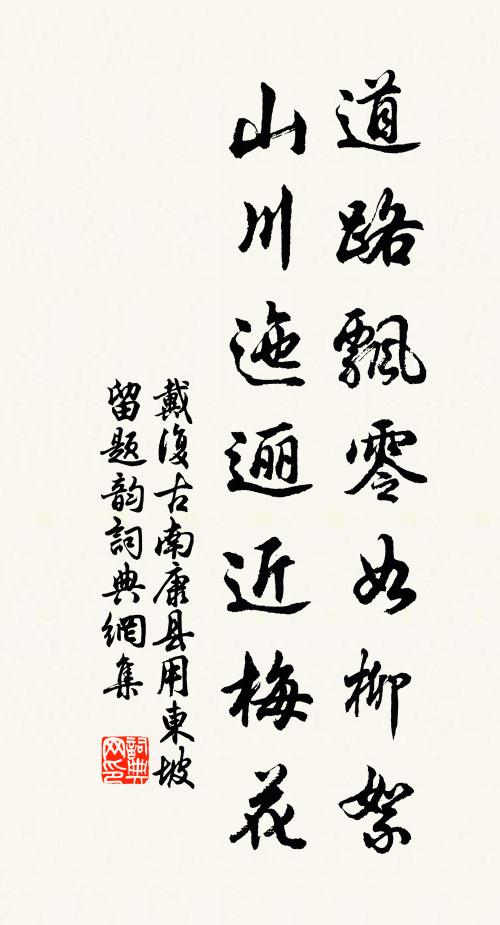 道路飄零如柳絮
山川迤逦近梅花
戴復古南康县用東坡
留題韵詞典網集
詞典
网印